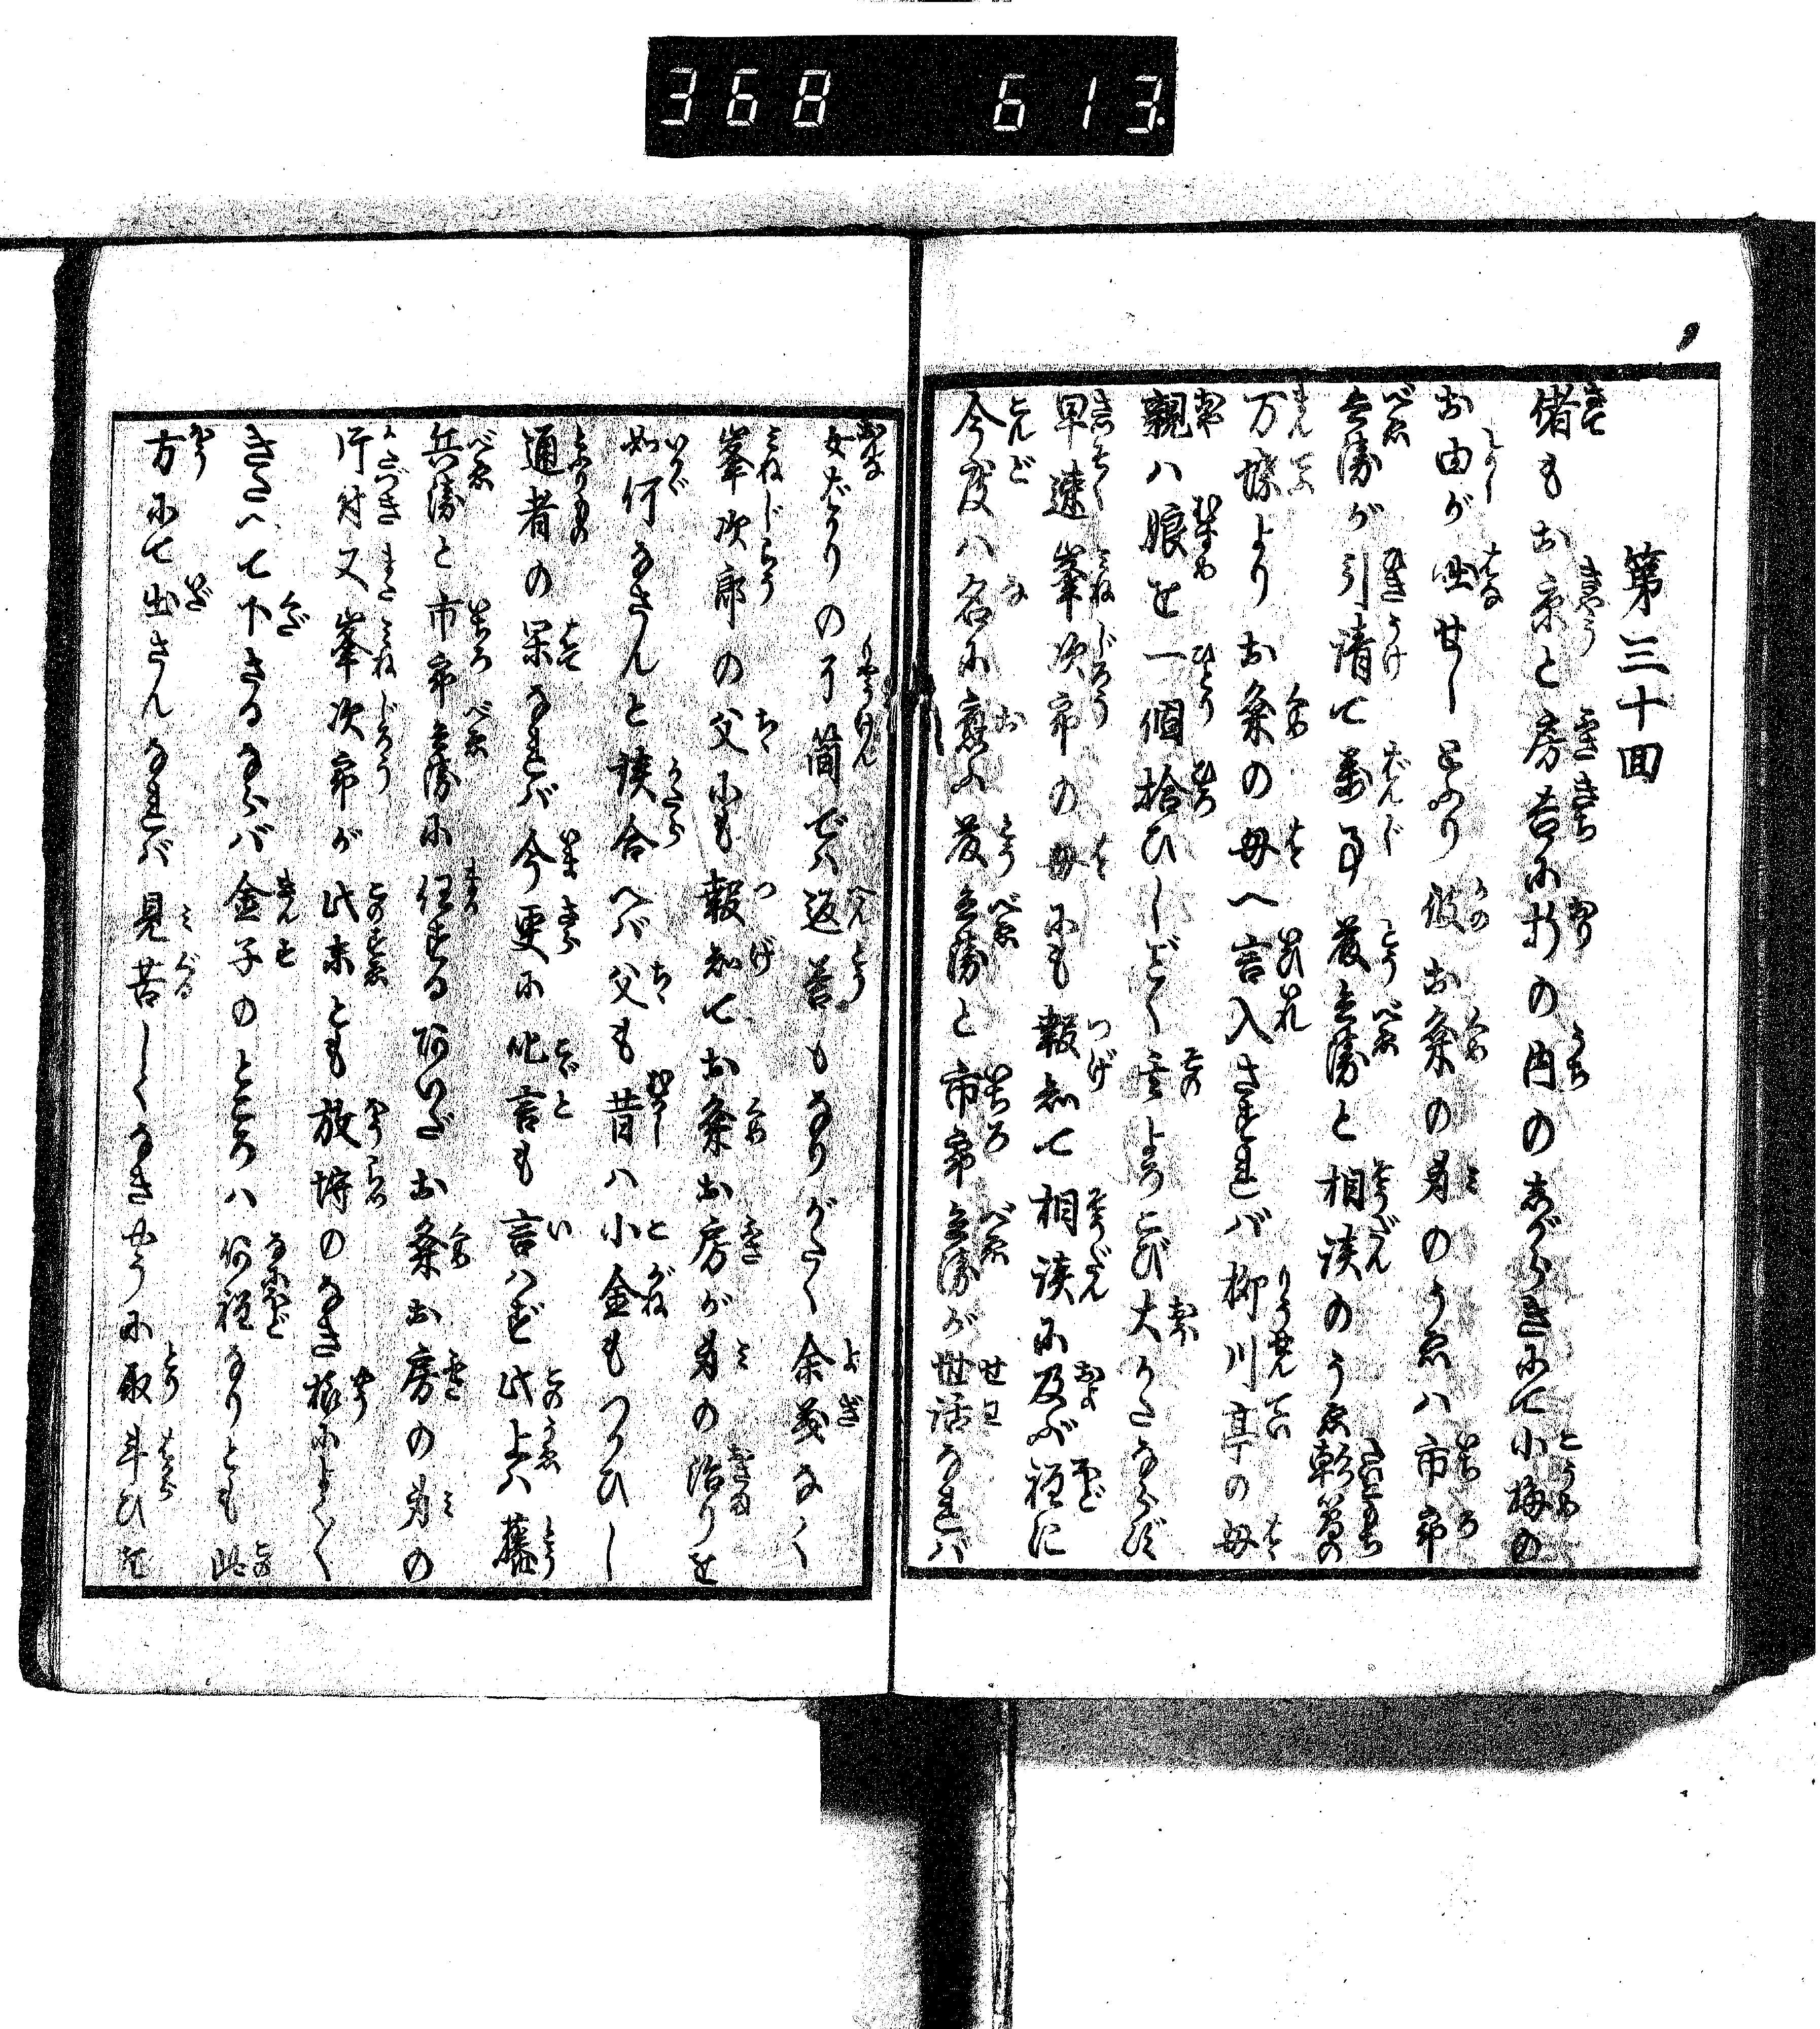 368 613
第三十回
偖もお京と房吉に折の内のあらましにて小梅の
お由が咄せしとふり彼お粂の身のうゑハ市郎
兵衛が引請て萬事藤兵衛と相談のうゑ
万蝶よりお粂の母へ言入されバ柳川亭の母
親ハ娘を一個拾ひしごとくよろこび大かたならず
早速峯次郎の母にも報知て相談に及ぶ程に
今度ハ名に應ふ藤兵衛と市郎兵衛が世活なれバ
女ばかりの了簡でハ返答もなりがたく余義なく
峯次郎の父にも報知てお粂お房が身の治りを
如何なさんと談合へバ父も昔ハ小金もつかひし
通者の果なれバ今更に叱言も言ハず此上ハ藤
兵衛と市郎兵衛に任せる間だお粂お房の身の
片付又峯次郎が此末とも放埓のなき様によく〳〵
きこへて下さるならバ金子のところハ何程なりとも此
方にて出さんなれバ見苦しくなきやうに取斗ひを